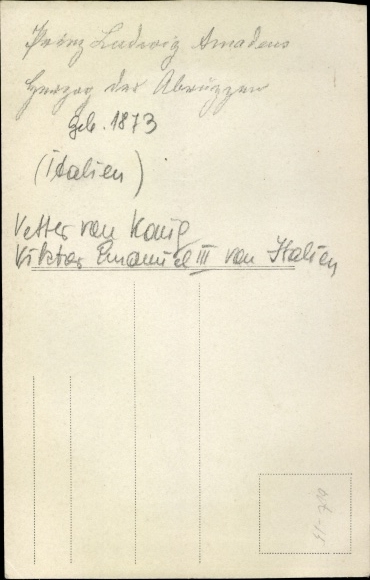 Prinz Ludwig Amadeus
Herzog der Abruzzen
geb. 1873
(italien)
Vetter von König
Viktor Emanuel III von Italien